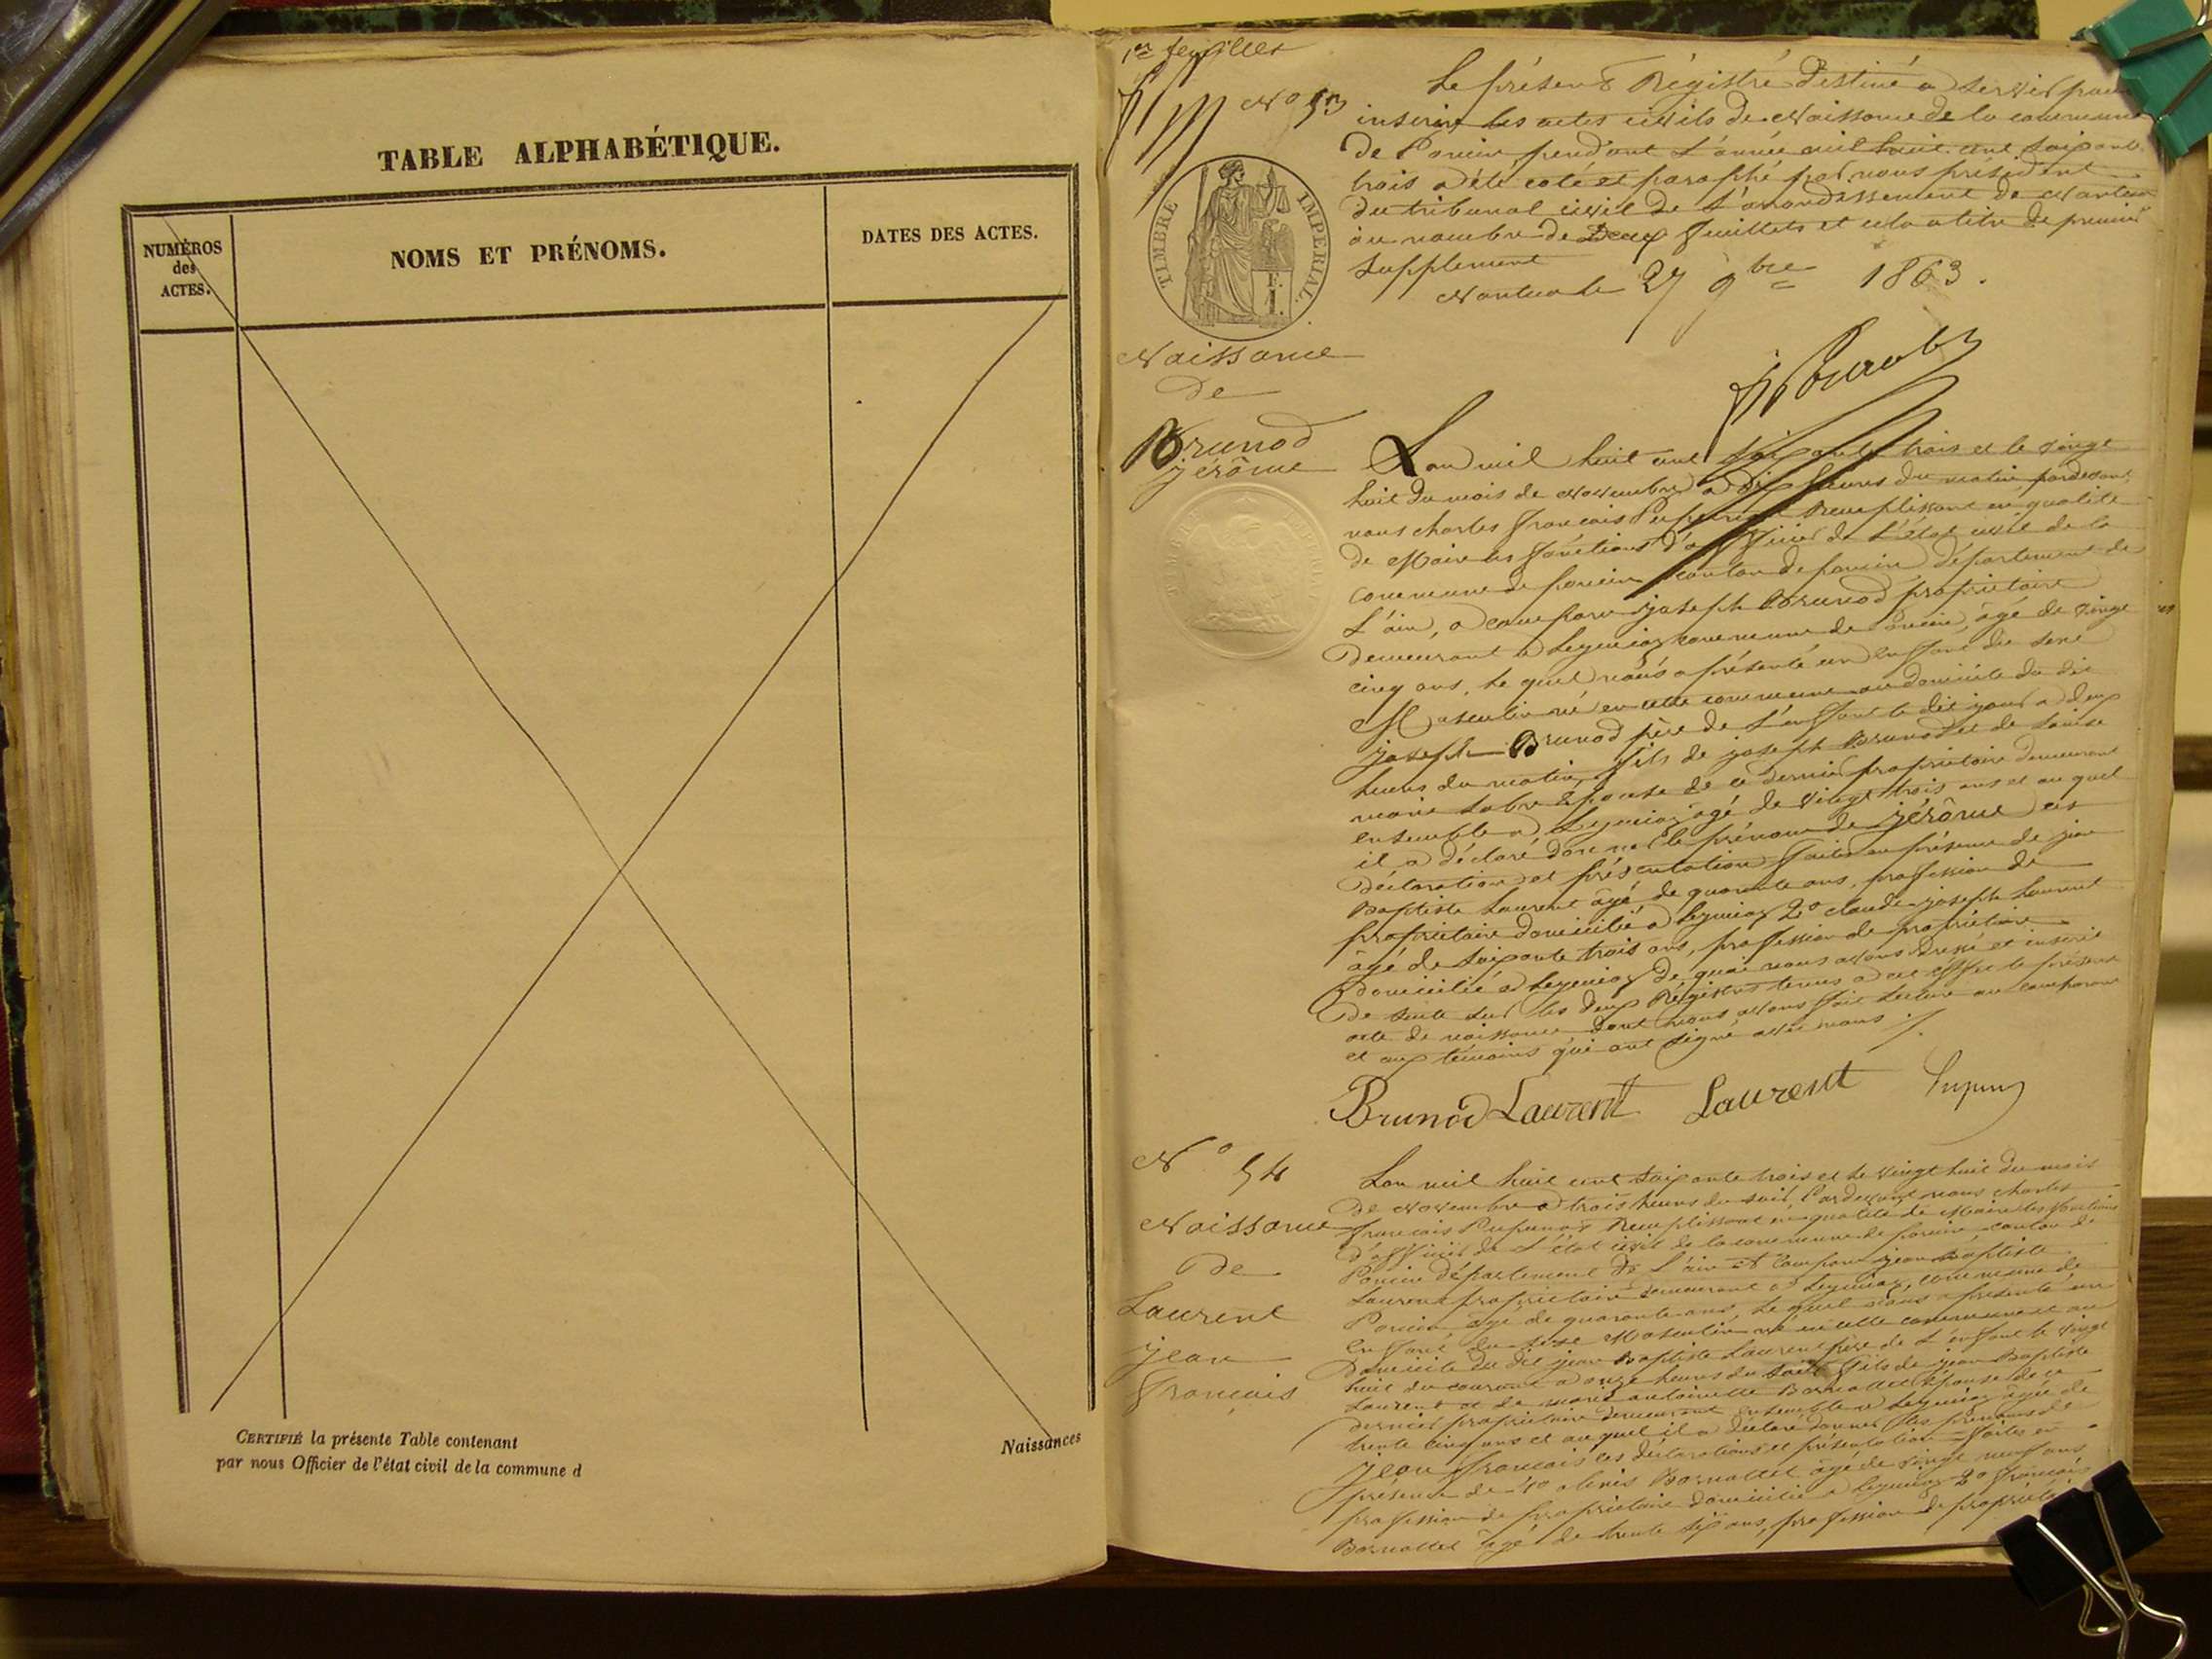 TABLE ALPHABÉTIQUE.
NUMÉROS
des
ACTES.
NOMS ET PRÉNOMS.
DATES DES ACTES.
CERTIFIÉ la présente Table contenant
Naissances
par nous Officier de l'état civil de la commune d
1er feuillet
No 53
TIMBRE IMPÉRIAL.
Le présent Régistre destiné a servir pour
inserire les actes civils de Naissance de la commune
de Poncin pendant l'année mil huit cent soixante
trois a été coté et paraphé par nous président
du tribunal civil de l'arrondissement de Nantua
au nombre de deux feuillets et cela a titre de premier
supplement
Nantua le 27 9bre 1863.
Naissance
de
Brunod
jérôme
L'an mil huit cent soixante trois et le vingt
huit du mois de Novembre a dix heures du matin pardevant
nous charles françois Remplissant en qualité
de Maire les fonctions d'officier de L'état civil de la
commune de poncin canton de poncin département de
L'ain, a comparu joseph Brunod propriétaire
demeurant a Leymiaz commune de poncin, âgé de vingt
cinq ans, le quel nous a présenté un enfant du sexe
Masculin né en cette commune au domicile du dit
joseph Brunod père de L'enfant le dit jour a deux
heures du matin, fils de joseph Brunod et de Louise
marie épouse de ce dernier propriétaire demeurant
ensemble a Leymiaz âgé de vingt trois ans et au quel
il a déclaré donner le prénom de jérôme ces
déclaration et présentation faites en présence de jean
Baptiste Laurent âgé de quarante ans, profession de
propriétaire domicilié a Leymiaz 2o claude joseph Laurent
âgé de soixante trois ans, profession de propriétaire
domicilié a Leymiaz de quoi nous avons dressé et inscrit
de suite sur les deux Régistres tenus a cet effet le présent
acte de naissance dont nous avons fait lecture au comparant
et aux témoins qui ont signé avec nous ./.
Brunod Laurent Laurent
No 54
Naissance
de
Laurent
jean
françois
L'an mil huit cent soixante trois et le vingt huit du mois
de Novembre a trois heures du soir Pardevant nous charles
françois Remplissant en qualité de Maire les fonctions
d'officier de L'état civil de la commune de poncin canton de
Poncin département de L'ain a comparu jean Baptiste
Laurent propriétaire demeurant a Leymiaz, commune de
Poncin âgé de quarante ans, le quel nous a présenté un
enfant du sexe Masculin né en cette commune et au
domicile du dit jean Baptiste Laurent père de L'enfant le vingt
huit du courant a onze heures du fils de jean Baptiste
Laurent et de marie antoinette épouse de ce
dernier propriétaire demeurant ensemble a Leymiaz âgée de
trente cinq ans et au quel il a déclaré donner les prénoms de
jean françois ces déclaration et présentation faites en
présence de 1o alexis âgé de vingt neuf ans
profession de propriétaire domicilié a Leymiaz 2o françois
âgé de trente six ans, profession de